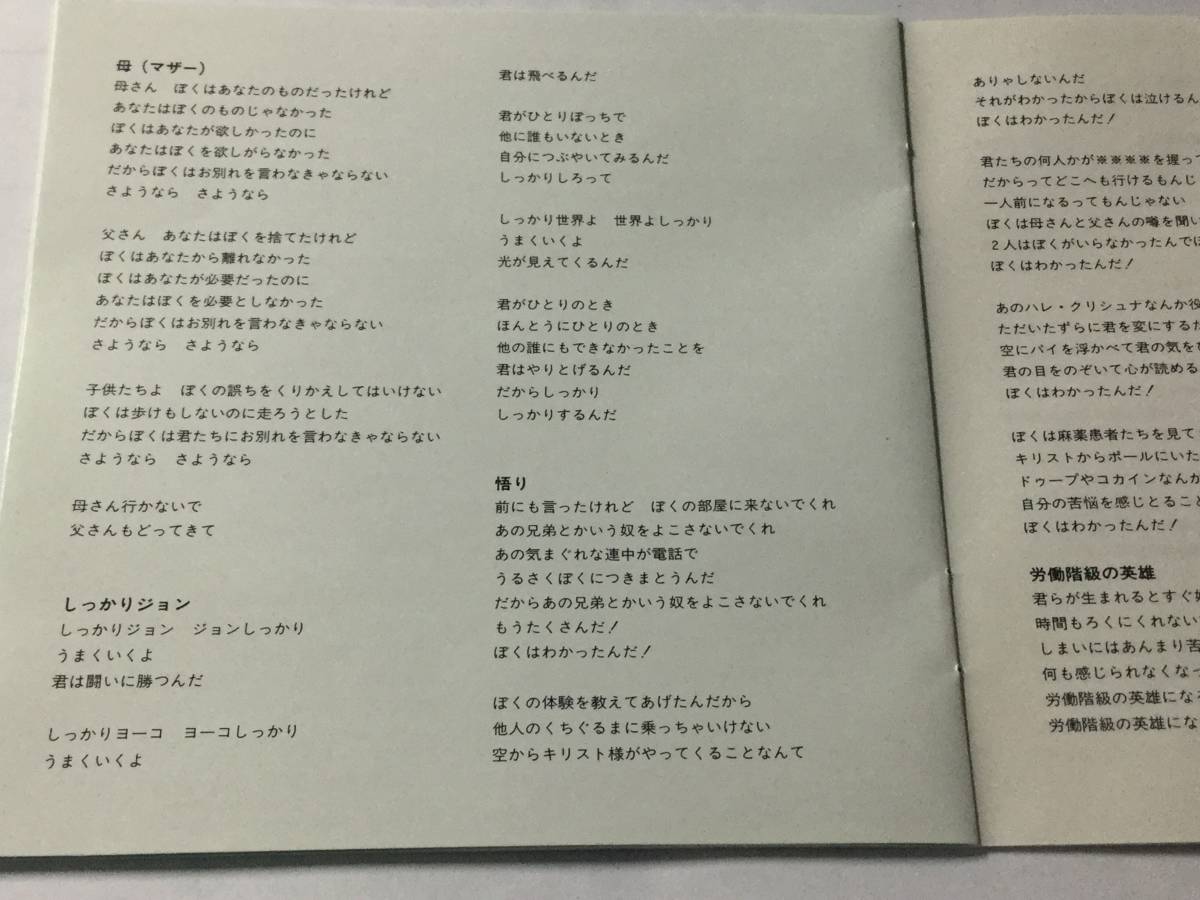 母（マザー）
母さん　ぼくはあなたのものだったけれど
あなたはぼくのものじゃなかった
ぼくはあなたが欲しかったのに
あなたはぼくを欲しがらなかった
だからぼくはお別れを言わなきゃならない
さようなら　さようなら
父さん　あなたはぼくを捨てたけれど
ぼくはあなたから離れなかった
ぼくはあなたが必要だったのに
あなたはぼくを必要としなかった
だからぼくはお別れを言わなきゃならない
さようなら　さようなら
子供たちよ　ぼくの誤ちをくりかえしてはいけない
ぼくは歩けもしないのに走ろうとした
だからぼくは君たちにお別れを言わなきゃならない
さようなら　さようなら
母さん行かないで
父さんもどってきて
しっかりジョン
しっかりジョン　ジョンしっかり
うまくいくよ
君は闘いに勝つんだ
しっかりヨーコ　ヨーコしっかり
うまくいくよ
君は飛べるんだ
君がひとりぼっちで
他に誰もいないとき
自分につぶやいてみるんだ
しっかりしろって
しっかり世界よ　世界よしっかり
うまくいくよ
光が見えてくるんだ
君がひとりのとき
ほんとうにひとりのとき
他の誰にもできなかったことを
君はやりとげるんだ
だからしっかり
しっかりするんだ
悟り
前にも言ったけれど　ぼくの部屋に来ないでくれ
あの兄弟とかいう奴をよこさないでくれ
あの気まぐれな連中が電話で
うるさくぼくにつきまとうんだ
だからあの兄弟とかいう奴をよこさないでくれ
もうたくさんだ！
ぼくはわかったんだ！
ぼくの体験を教えてあげたんだから
他人のくちぐるまに乗っちゃいけない
空からキリスト様がやってくることなんて
ありゃしないんだ
それがわかったからぼくは泣けるん
ぼくはわかったんだ！
君たちの何人かが※※※※を握って
だからってどこへも行けるもんじ
一人前になるってもんじゃない
ぼくは母さんと父さんの噂を聞い
２人はぼくがいらなかったんで
ぼくはわかったんだ！
あのハレ・クリシュナなんか役
ただいたずらに君を変にするだ
空にパイを浮かべて君の気を
君の目をのぞいて心が読める
ぼくはわかったんだ！
ぼくは麻薬患者たちを見て
キリストからポールにいた
ドゥープやコカインなんか
自分の苦悩を感じとること
ぼくはわかったんだ！
労働階級の英雄
君らが生まれるとすぐ
時間もろくにくれない
しまいにはあんまり苦
何も感じられなくなっ
労働階級の英雄にな
労働階級の英雄にな